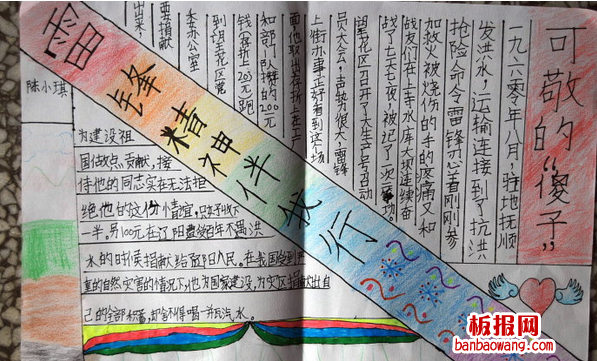 可敬的“傻子”
一九六零年八月，驻地抚顺
发洪水，运输连接到了抗洪
抢险命令雷锋忍着刚刚参
加救火被烧伤的手的疼痛又和
战友们在上寺水库大坝连续奋
战了七天七夜，被记了二次功
望花区召开了大生产号召动
员大会，声势很大，雷锋
上街办事正好看到这个场
面他取出存折上在工厂
和部队攒的200元
钱（存折上203元）跑
到望花区党
委办公室
要捐献
出来
为建设祖
国做点贡献，接
侍他的同志实在无法拒
绝他的这份情谊，只好收下
一半。另100元在辽阳遭受百年不遇洪
水的时候捐献给了辽阳人民。在我国受到严
重的自然灾害的情况下，他为国家建设，为灾区捐献出自
己的全部积蓄，却舍不得喝一并瓦汽水。
雷锋精神伴我行
陈小琪
板报网
banbaowang.com